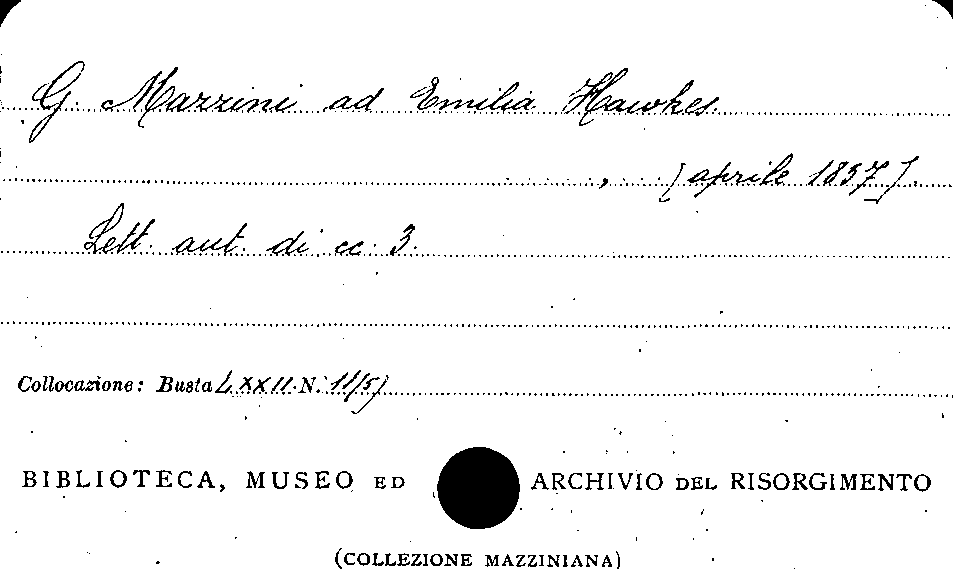 G. Mazzini ad Emilia Hawkes.
, [aprile 1857].
Lett. aut. di cc. 3.
Collocazione: Busta LXXII N. 11/5)
BIBLIOTECA, MUSEO ED ARCHIVIO DEL RISORGIMENTO
(COLLEZIONE MAZZINIANA)